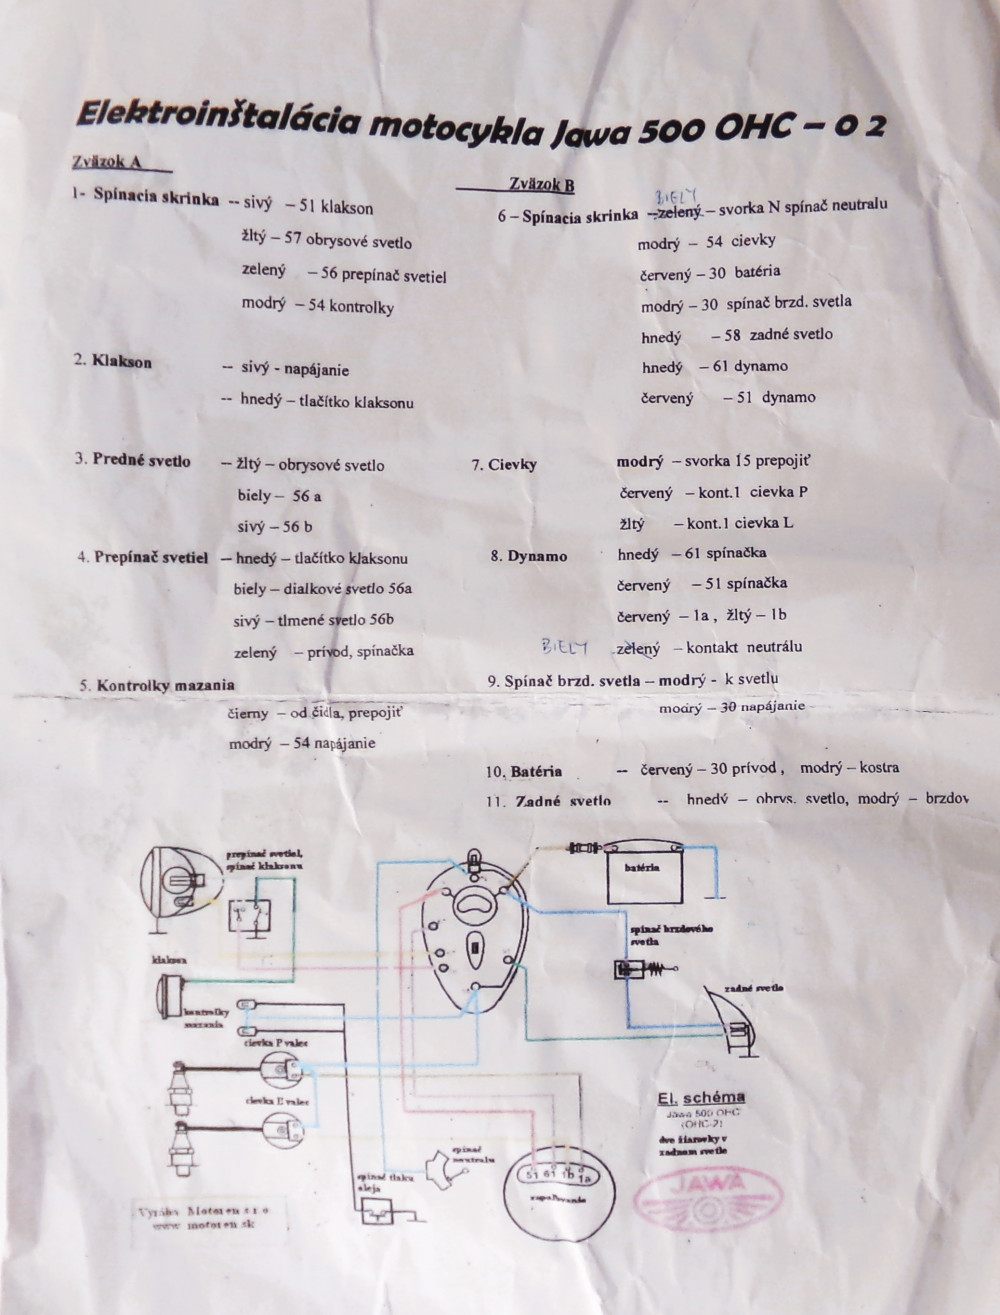 Elektroinštalácia motocykla Jawa 500 OHC – o 2
Zväzok A
1- Spínacia skrinka -- sivý – 51 klakson
žltý – 57 obrysové svetlo
zelený – 56 prepínač svetiel
modrý – 54 kontrolky
2. Klakson -- sivý - napájanie
-- hnedý – tlačítko klaksonu
3. Predné svetlo – žltý – obrysové svetlo
biely – 56 a
sivý – 56 b
4. Prepínač svetiel – hnedý – tlačítko klaksonu
biely – dialkové svetlo 56a
sivý – tlmené svetlo 56b
zelený – prívod, spínačka
5. Kontrolky mazania
čierny – od čidla, prepojiť
modrý – 54 napájanie
Zväzok B
BIELY
6 – Spínacia skrinka – zelený – svorka N spínač neutralu
modrý – 54 cievky
červený – 30 batéria
modrý – 30 spínač brzd. svetla
hnedý – 58 zadné svetlo
hnedý – 61 dynamo
červený – 51 dynamo
7. Cievky modrý – svorka 15 prepojiť
červený – kont.1 cievka P
žltý – kont.1 cievka L
8. Dynamo hnedý – 61 spínačka
červený – 51 spínačka
červený – 1a , žltý – 1b
BIELY zelený – kontakt neutrálu
9. Spínač brzd. svetla – modrý - k svetlu
modrý – 30 napájanie
10. Batéria -- červený – 30 prívod , modrý – kostra
11. Zadné svetlo -- hnedý – obrys. svetlo, modrý – brzdov
prepínač svetiel,
spínač klaksonu
batéria
spínač brzdového
svetla
klakson
zadné svetlo
kontrolky
mazania
cievka P valec
cievka L valec
El. schéma
Jawa 500 OHC
(OHC-2)
dve žiarovky v
zadnom svetle
spínač
neutralu
spínač tlaku
oleja
51 61 1b 1a
zapaľovanie
JAWA
Výroba Motoren s r o
www motoren sk